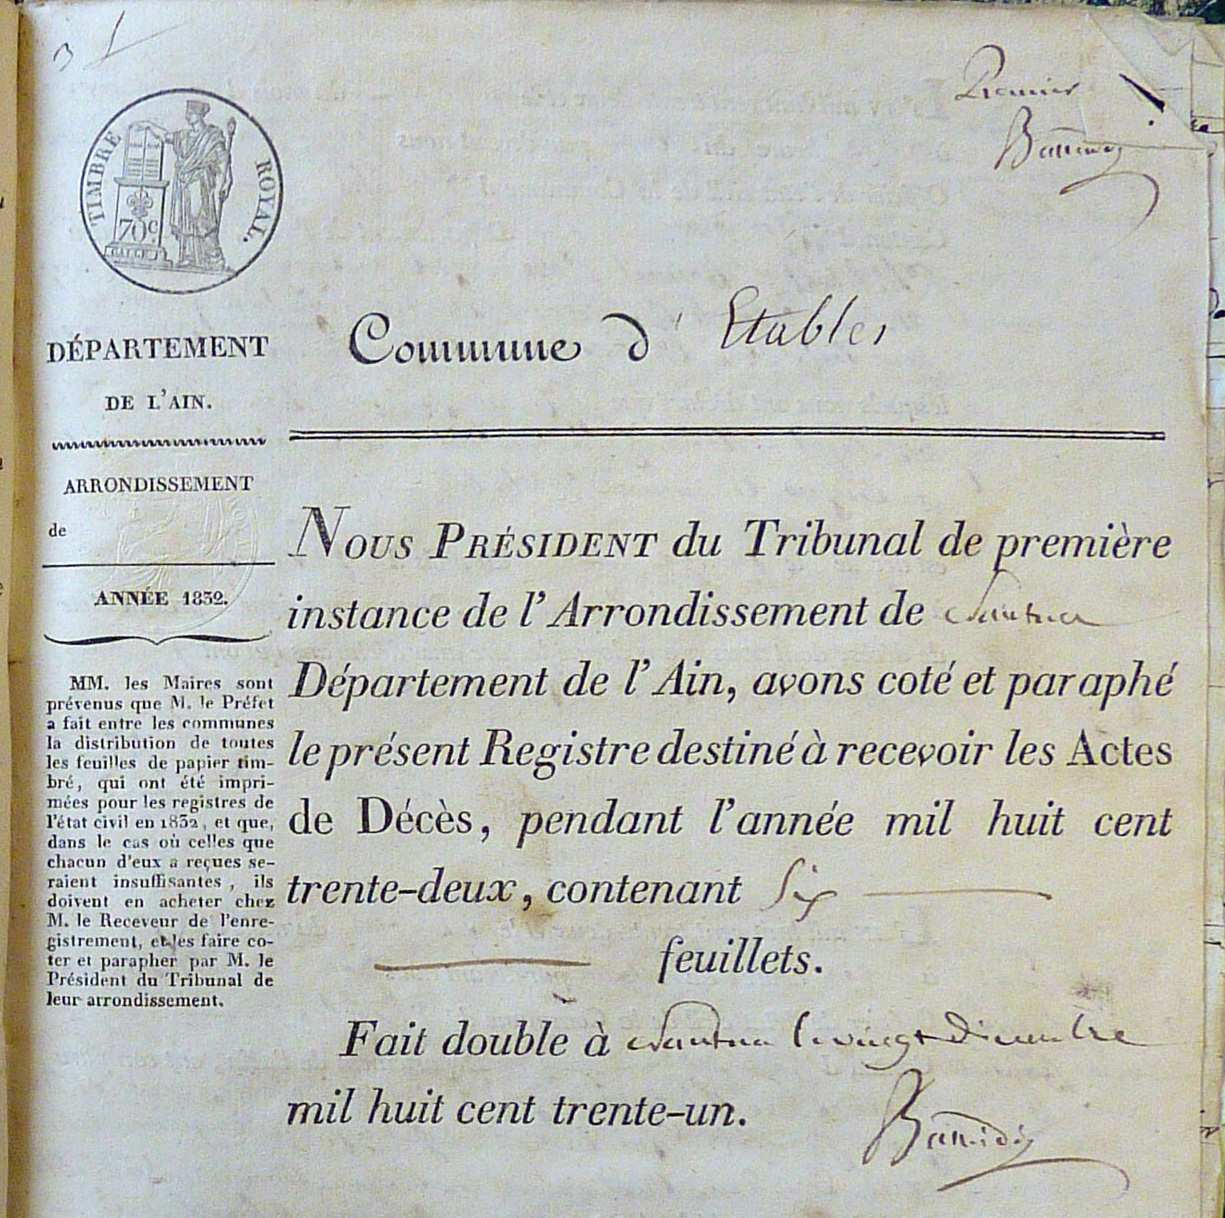 Premier
TIMBRE ROYAL.
70c.
DÉPARTEMENT
DE L'AIN.
Commune d'Etables
ARRONDISSEMENT
de
ANNÉE 1832.
MM. les Maires sont
prévenus que M. le Préfet
a fait entre les communes
la distribution de toutes
les feuilles de papier tim-
bré, qui ont été impri-
mées pour les registres de
l'état civil en 1832, et que,
dans le cas où celles que
chacun d'eux a reçues se-
raient insuffisantes, ils
doivent en acheter chez
M. le Receveur de l'enre-
gistrement, et les faire co-
ter et parapher par M. le
Président du Tribunal de
leur arrondissement.
NOUS PRÉSIDENT du Tribunal de première
instance de l'Arrondissement de Nantua
Département de l'Ain, avons coté et paraphé
le présent Registre destiné à recevoir les Actes
de Décès, pendant l'année mil huit cent
trente-deux, contenant Six
feuillets.
Fait double à Nantua le vingt Décembre
mil huit cent trente-un.